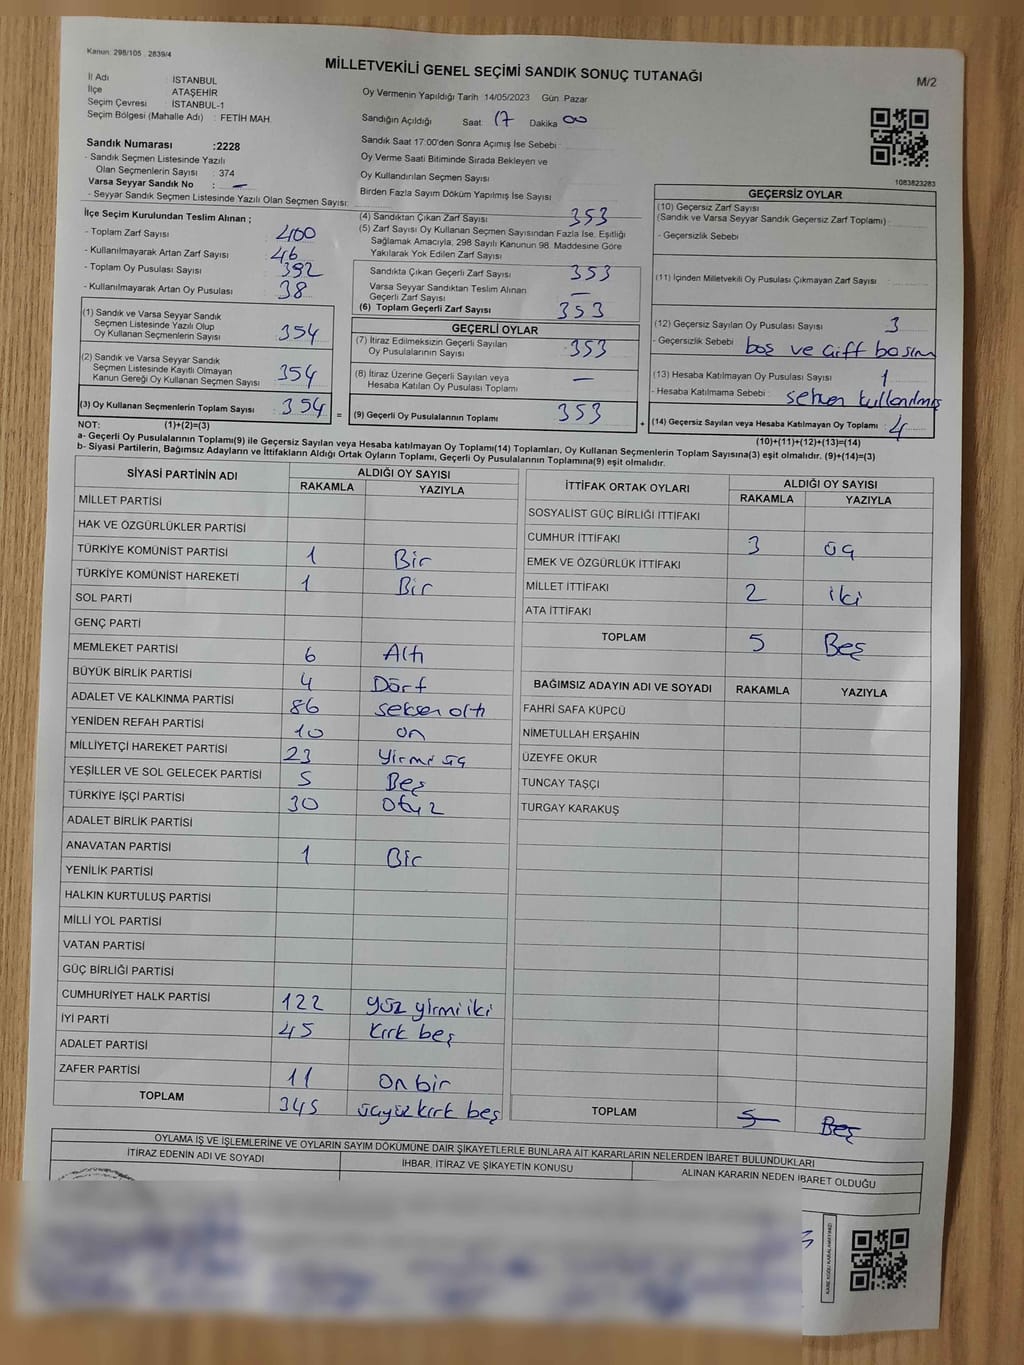 Kanun: 298/105 2839/4
MİLLETVEKİLİ GENEL SEÇİMİ SANDIK SONUÇ TUTANAĞI
M/2
İl Adı : İSTANBUL
İlçe : ATAŞEHİR
Seçim Çevresi : İSTANBUL-1
Seçim Bölgesi (Mahalle Adı) : FETİH MAH.
Sandık Numarası :2228
- Sandık Seçmen Listesinde Yazılı
Olan Seçmenlerin Sayısı : 374
Varsa Seyyar Sandık No : —
- Seyyar Sandık Seçmen Listesinde Yazılı Olan Seçmen Sayısı:
Oy Vermenin Yapıldığı Tarih 14/05/2023 Gün Pazar
Sandığın Açıldığı Saat 17 Dakika 00
Sandık Saat 17:00'den Sonra Açımış İse Sebebi
Oy Verme Saati Bitiminde Sırada Bekleyen ve
Oy Kullandırılan Seçmen Sayısı
Birden Fazla Sayım Döküm Yapılmış İse Sayısı
1083823283
İlçe Seçim Kurulundan Teslim Alınan ;
- Toplam Zarf Sayısı 400
- Kullanılmayarak Artan Zarf Sayısı 46
- Toplam Oy Pusulası Sayısı 392
- Kullanılmayarak Artan Oy Pusulası 38
(1) Sandık ve Varsa Seyyar Sandık
Seçmen Listesinde Yazılı Olup
Oy Kullanan Seçmenlerin Sayısı 354
(2) Sandık ve Varsa Seyyar Sandık
Seçmen Listesinde Kayıtlı Olmayan
Kanun Gereği Oy Kullanan Seçmen Sayısı 354
(3) Oy Kullanan Seçmenlerin Toplam Sayısı 354 =
(4) Sandıktan Çıkan Zarf Sayısı 353
(5) Zarf Sayısı Oy Kullanan Seçmen Sayısından Fazla İse, Eşitliği
Sağlamak Amacıyla, 298 Sayılı Kanunun 98. Maddesine Göre
Yakılarak Yok Edilen Zarf Sayısı
Sandıkta Çıkan Geçerli Zarf Sayısı 353
Varsa Seyyar Sandıktan Teslim Alınan
Geçerli Zarf Sayısı —
(6) Toplam Geçerli Zarf Sayısı 353
GEÇERLİ OYLAR
(7) İtiraz Edilmeksizin Geçerli Sayılan
Oy Pusulalarının Sayısı 353
(8) İtiraz Üzerine Geçerli Sayılan veya
Hesaba Katılan Oy Pusulası Toplamı —
(9) Geçerli Oy Pusulalarının Toplamı 353 +
GEÇERSİZ OYLAR
(10) Geçersiz Zarf Sayısı
(Sandık ve Varsa Seyyar Sandık Geçersiz Zarf Toplamı)
- Geçersizlik Sebebi
(11) İçinden Milletvekili Oy Pusulası Çıkmayan Zarf Sayısı
(12) Geçersiz Sayılan Oy Pusulası Sayısı 3
- Geçersizlik Sebebi boş ve çift basım
(13) Hesaba Katılmayan Oy Pusulası Sayısı 1
- Hesaba Katılmama Sebebi sehven kullanılmış
(14) Geçersiz Sayılan veya Hesaba Katılmayan Oy Toplamı 4
NOT: (1)+(2)=(3)
(10)+(11)+(12)+(13)=(14)
a- Geçerli Oy Pusulalarının Toplamı(9) ile Geçersiz Sayılan veya Hesaba katılmayan Oy Toplamı(14) Toplamları, Oy Kullanan Seçmenlerin Toplam Sayısına(3) eşit olmalıdır. (9)+(14)=(3)
b- Siyasi Partilerin, Bağımsız Adayların ve İttifakların Aldığı Ortak Oyların Toplamı, Geçerli Oy Pusulalarının Toplamına(9) eşit olmalıdır.
SİYASİ PARTİNİN ADI ALDIĞI OY SAYISI
RAKAMLA YAZIYLA
MİLLET PARTİSİ
HAK VE ÖZGÜRLÜKLER PARTİSİ
TÜRKİYE KOMÜNİST PARTİSİ 1 Bir
TÜRKİYE KOMÜNİST HAREKETİ 1 Bir
SOL PARTİ
GENÇ PARTİ
MEMLEKET PARTİSİ 6 Altı
BÜYÜK BİRLİK PARTİSİ 4 Dört
ADALET VE KALKINMA PARTİSİ 86 seksen altı
YENİDEN REFAH PARTİSİ 10 on
MİLLİYETÇİ HAREKET PARTİSİ 23 yirmi üç
YEŞİLLER VE SOL GELECEK PARTİSİ 5 Beş
TÜRKİYE İŞÇİ PARTİSİ 30 otuz
ADALET BİRLİK PARTİSİ
ANAVATAN PARTİSİ 1 Bir
YENİLİK PARTİSİ
HALKIN KURTULUŞ PARTİSİ
MİLLİ YOL PARTİSİ
VATAN PARTİSİ
GÜÇ BİRLİĞİ PARTİSİ
CUMHURİYET HALK PARTİSİ 122 yüz yirmi iki
İYİ PARTİ 45 kırk beş
ADALET PARTİSİ
ZAFER PARTİSİ 11 On bir
TOPLAM 345 üçyüz kırk beş
İTTİFAK ORTAK OYLARI ALDIĞI OY SAYISI
RAKAMLA YAZIYLA
SOSYALİST GÜÇ BİRLİĞİ İTTİFAKI
CUMHUR İTTİFAKI 3 üç
EMEK VE ÖZGÜRLÜK İTTİFAKI
MİLLET İTTİFAKI 2 iki
ATA İTTİFAKI
TOPLAM 5 Beş
BAĞIMSIZ ADAYIN ADI VE SOYADI RAKAMLA YAZIYLA
FAHRİ SAFA KÜPCÜ
NİMETULLAH ERŞAHİN
ÜZEYFE OKUR
TUNCAY TAŞÇI
TURGAY KARAKUŞ
TOPLAM 5 Beş
OYLAMA İŞ VE İŞLEMLERİNE VE OYLARIN SAYIM DÖKÜMÜNE DAİR ŞİKAYETLERLE BUNLARA AİT KARARLARIN NELERDEN İBARET BULUNDUKLARI
İTİRAZ EDENİN ADI VE SOYADI İHBAR, İTİRAZ VE ŞİKAYETİN KONUSU ALINAN KARARIN NEDEN İBARET OLDUĞU